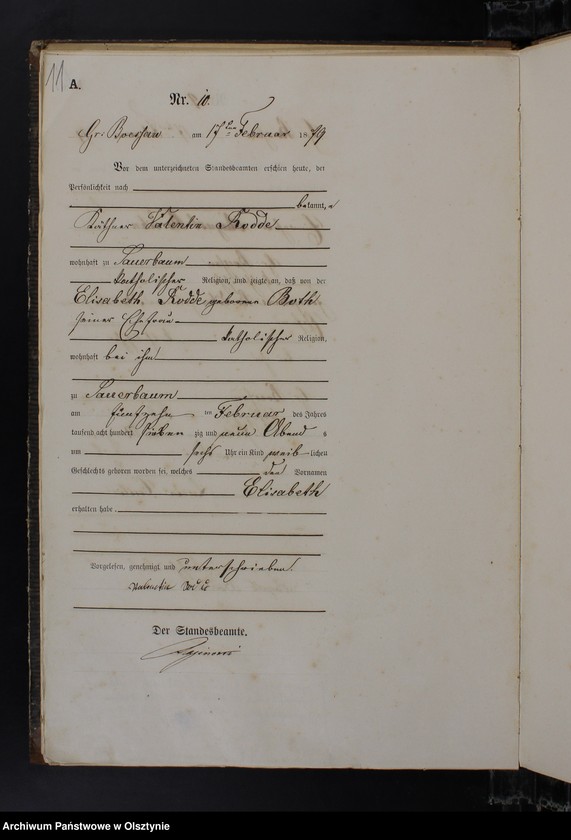 11
A.
Nr. 10.
Gr. Boessau am 17ten Februar 1879
Vor dem unterzeichneten Standesbeamten erschien heute, der
Persönlichkeit nach
bekannt,
Käthner Valentin Rodde
wohnhaft zu Lauerbaum
katholischer Religion, und zeigte an, daß von der
Elisabeth Rodde geborenen Both
seiner Ehefrau
katholischer Religion,
wohnhaft bei ihm
zu Lauerbaum
am fünfzehn ten Februar des Jahres
tausend acht hundert sieben zig und neun Abend s
um sechs Uhr ein Kind weib lichen
Geschlechts geboren worden sei, welches den Vornamen
Elisabeth
erhalten habe.
Vorgelesen, genehmigt und unterschrieben.
Valentin
Der Standesbeamte.
Archiwum Państwowe w Olsztynie